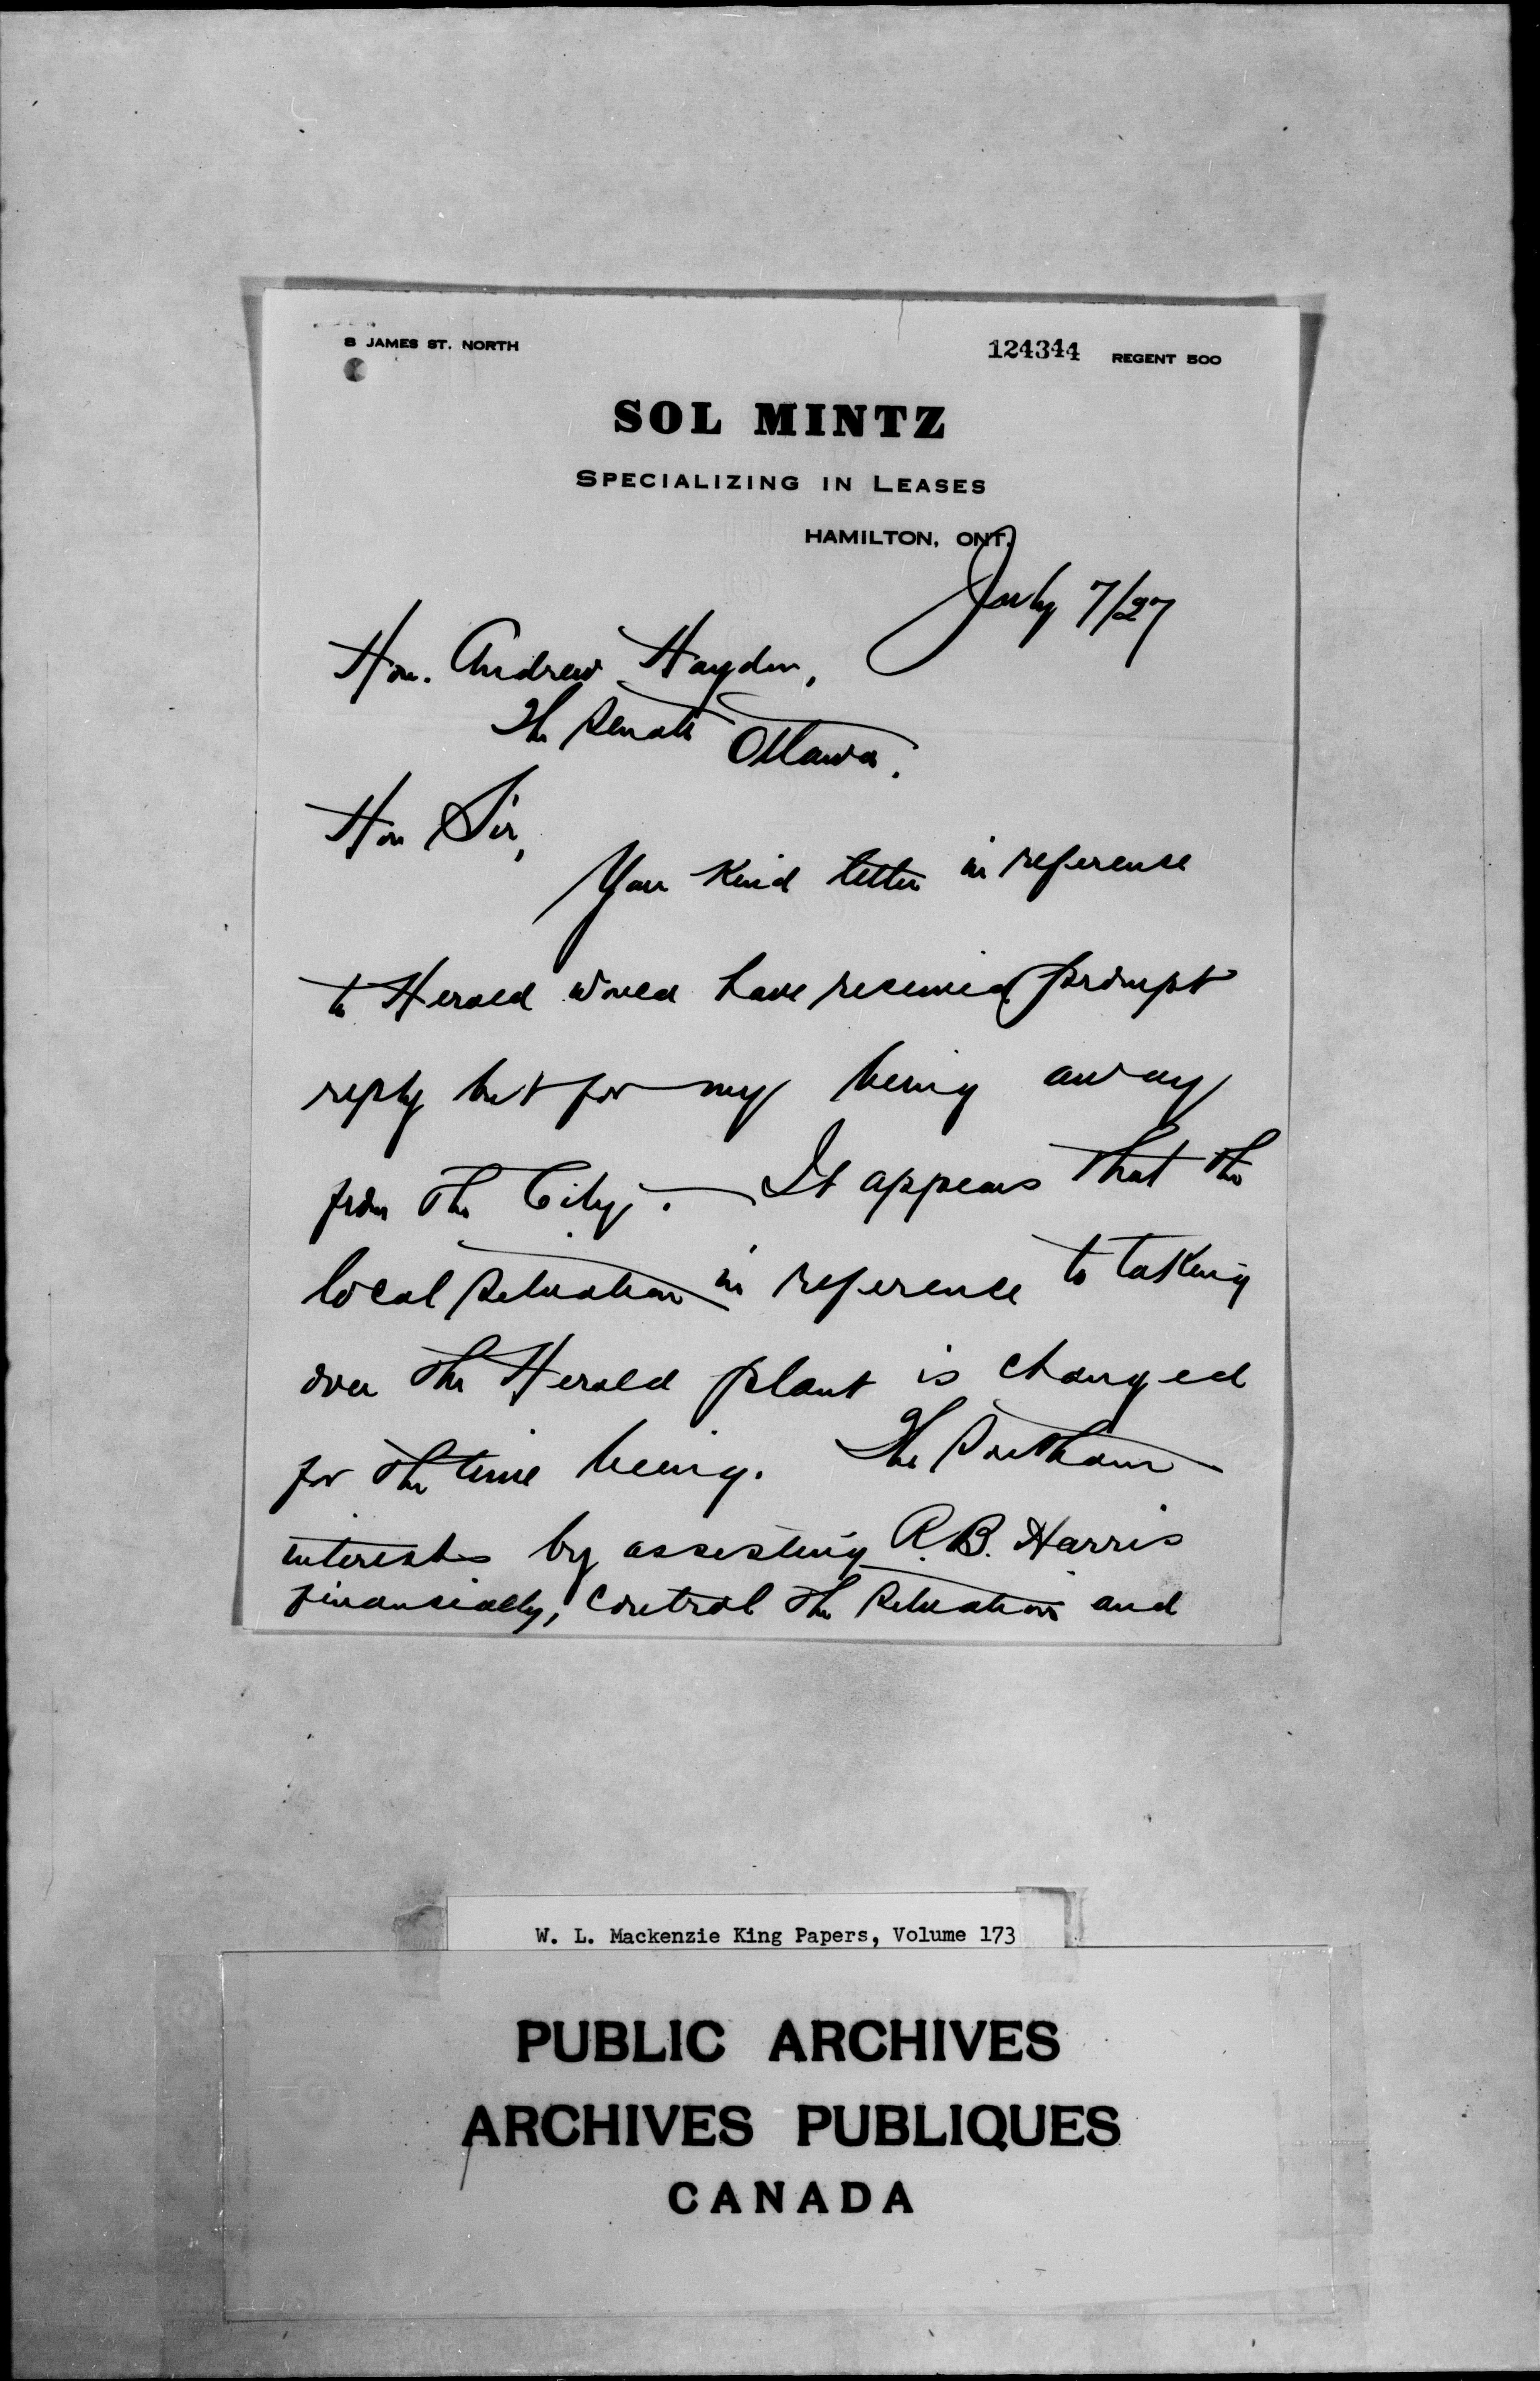 8 JAMES ST. NORTH
124344 REGENT 500
SOL MINTZ
SPECIALIZING IN LEASES
HAMILTON, ONT.
July 7/27
Hon. Andrew Haydon,
The Senate
Ottawa.
Hon Sir,
Your Kind letter in reference
to Herald would have received prompt
reply but for my being away
from the City. — It appears that the
local situation in reference to taking
over the Herald plant is changed
for the time being. The Southam
interests by assisting R.B. Harris
financially, control the situation and
W. L. Mackenzie King Papers, Volume 173
PUBLIC ARCHIVES
ARCHIVES PUBLIQUES
CANADA